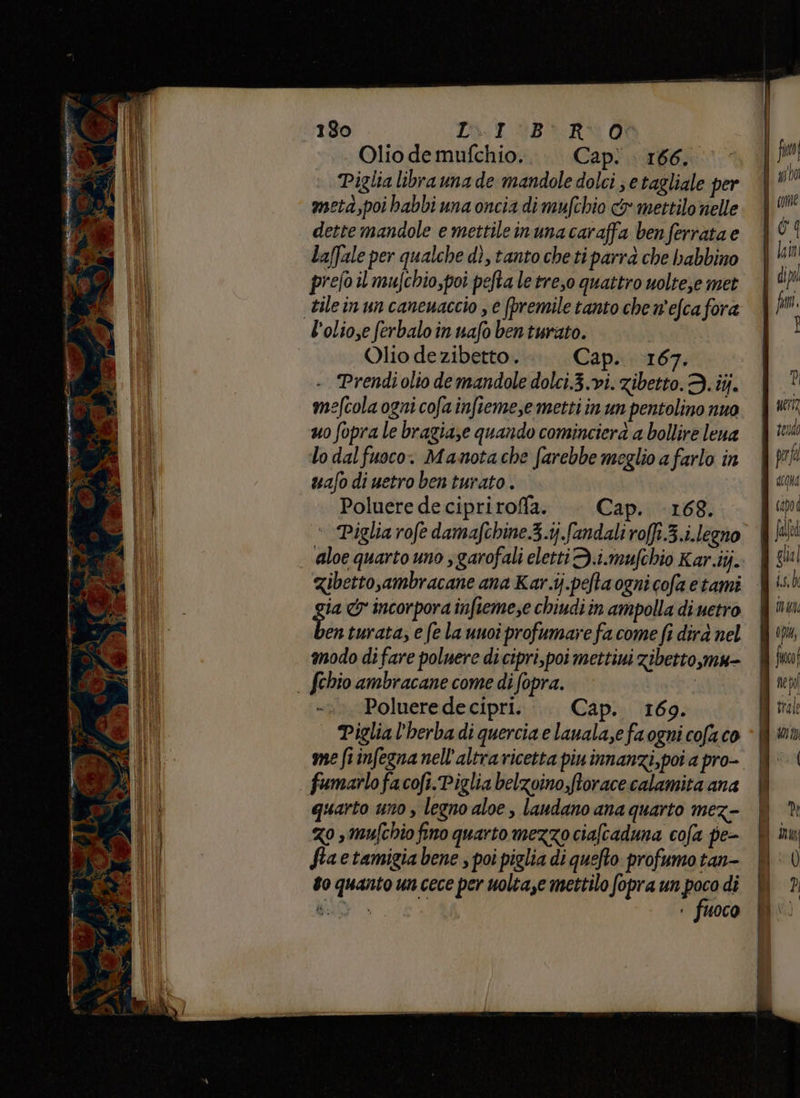 180 LIBRO
Olio de muſchio. Cap. 166.
Piglia libra una de mandole dolci, e tagliale per
metà, poi habbi una oncia di muſchio & mettilo nelle
dette mandole e mettile in una caraffa ben ferrata e
laſſale per qualche dì, tanto che ti parrà che habbino
preſo il muſchio, poi peſta le tre, o quattro uolte, e met
tile in un caneuaccio, e ſpremile tanto che n'eſca fora
l'olio, e ſerbalo in uaſo ben turato.
Olio de zibetto. Cap. 167.
Prendi olio de mandole dolci.℥.vi. zibetto.℈.iij.
meſcola ogni coſa inſieme, e metti in un pentolino nuo
uo ſopra le bragia, e quando comincierà a bollire leua
lo dal fuoco. Ma nota che ſarebbe meglio a farlo in
uaſo di uetro ben turato.
Poluere de cipri roſſa. Cap. 168.
Piglia roſe damaſchine.℥.ij. ſandali roſſi.℥.i. legno
aloe quarto uno, garofali eletti ℈.i. muſchio Kar.iij.
zibetto, ambracane ana Kar.ij. peſta ogni coſa e tami
gia & incorpora inſieme, e chiudi in ampolla di uetro
ben turata, e ſe la uuoi profumare fa come ſi dirà nel
modo di fare poluere di cipri, poi mettiui zibetto, mu-
ſchio ambracane come di ſopra.
Poluere de cipri. Cap. 169.
Piglia l'herba di quercia e lauala, e fa ogni coſa co
me ſi inſegna nell'altra ricetta piu innanzi, poi a pro-
fumarlo fa coſi. Piglia belzoino, ſtorace calamita ana
quarto uno, legno aloe, laudano ana quarto mez-
zo, muſchio fino quarto mezzo ciaſcaduna coſa pe-
ſta e tamigia bene, poi piglia di queſto profumo tan-
to quanto un cece per uolta, e mettilo ſopra un poco di
fuoco